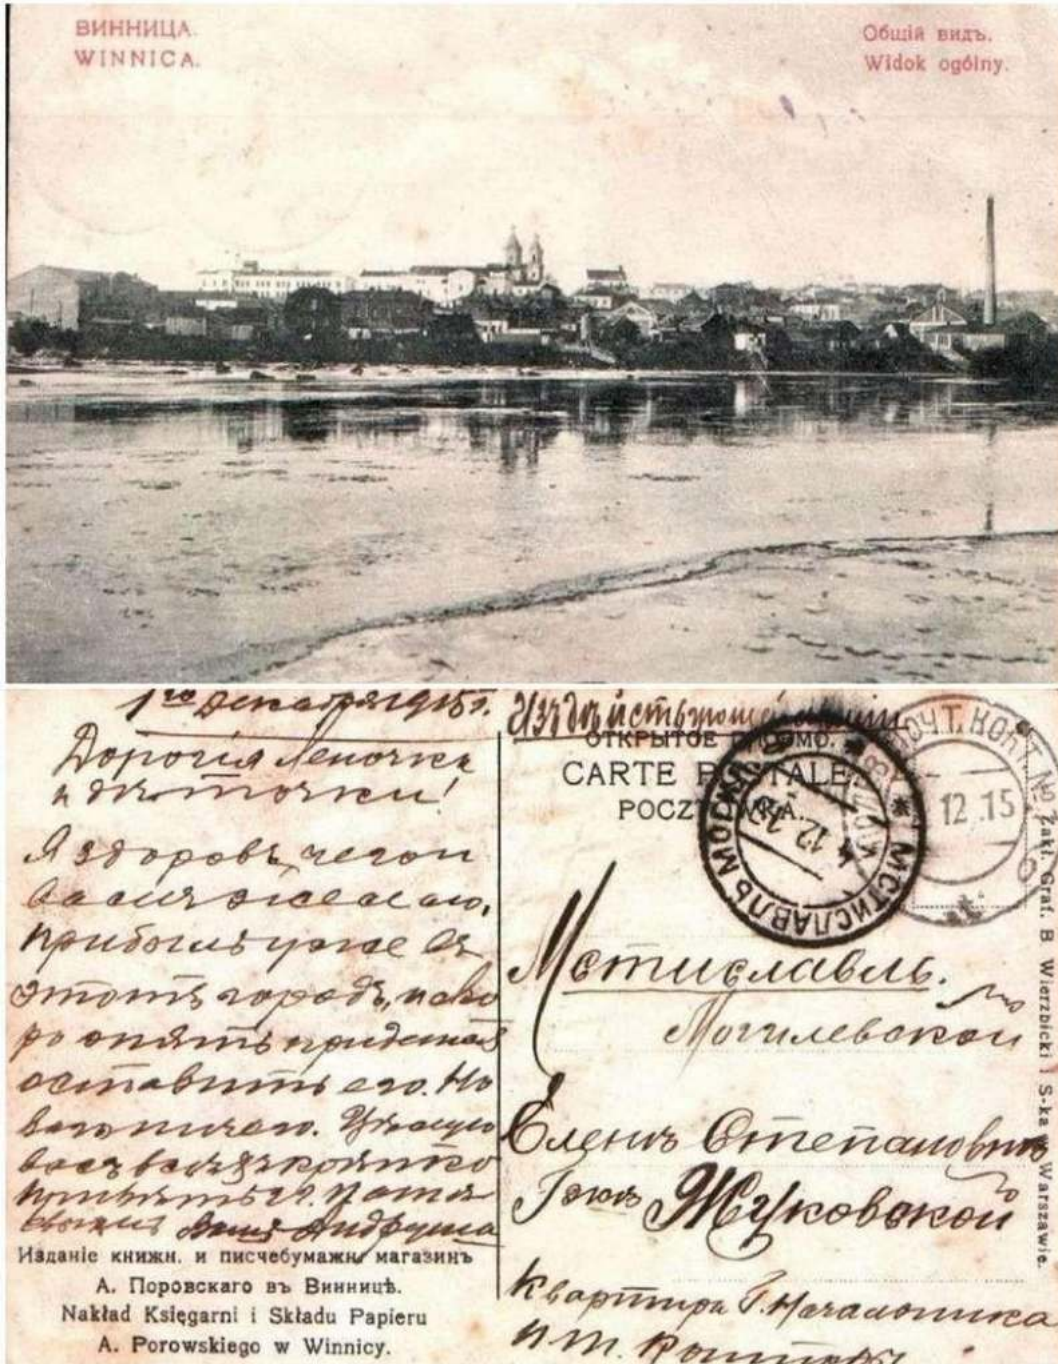 ВИННИЦА.
WINNICA.
Общій видъ.
Widok ogólny.
1го Декабря 1915 г.
Дорогія Леночка
и дѣточки!
Я здоровъ, чего и
вамъ желаю.
Прибылъ уже въ
этотъ городъ, и ско
ро опять придется
оставить его. Но
ваго ничего. Цѣлую
васъ всѣхъ крѣпко
Андруша
Изданіе книжн. и писчебумажн. магазинъ
А. Поровскаго въ Винницѣ.
Nakład Księgarni i Składu Papieru
A. Porowskiego w Winnicy.
Изъ дѣйствующей арміи
ОТКРЫТОЕ ПИСЬМО.
CARTE POSTALE.
POCZTÓWKA.
МСТИСЛАВЛЬ МОГИЛ
4 12 15
ПОЧТ. КОНТ. №
12.15
Мстиславль.
Могилевской
Еленѣ Степановнѣ
Гжѣ Жуковской
Квартира Г. Начальника
п. т. Конторы
Zakł. Graf. B. Wierzbicki i S-ka w Warszawie.